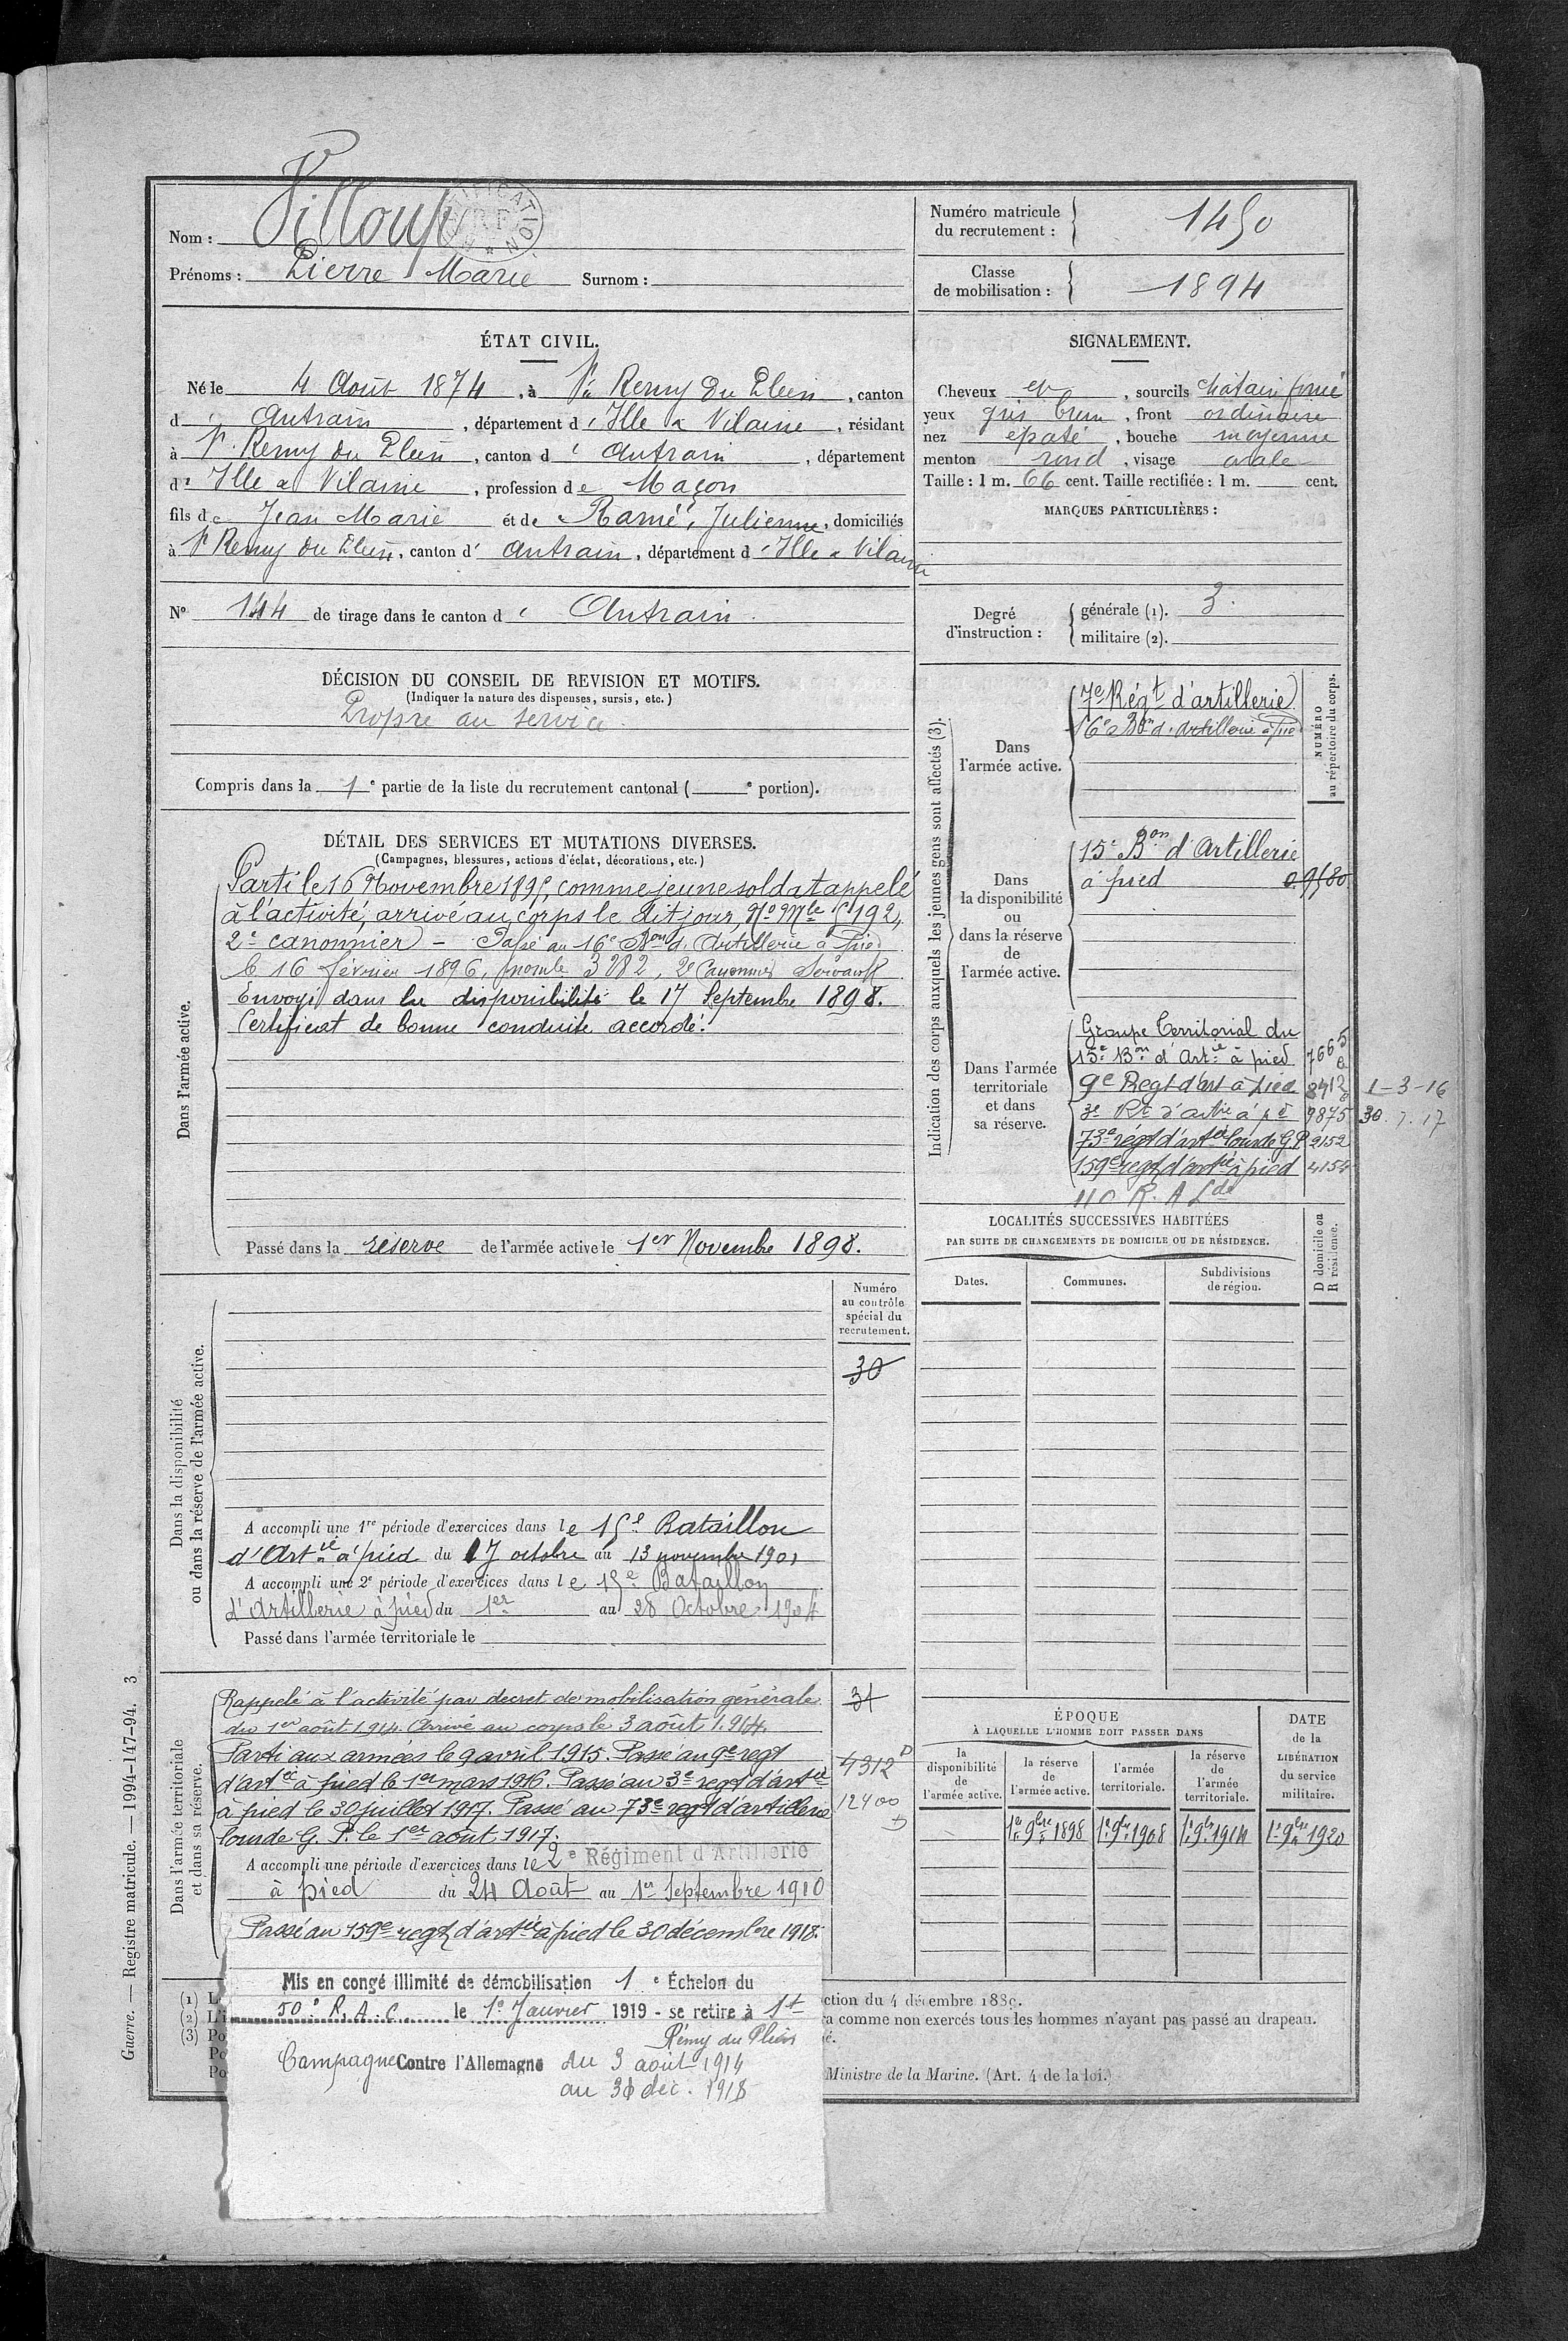 Nom : Villoup
Prénoms : Pierre Marie Surnom :
Numéro matricule du recrutement : 1450
Classe de mobilisation : 1894
ÉTAT CIVIL.
Né le 4 Août 1874, à St Remy du Plein, canton
d' Antrain, département d'Ille & Vilaine, résidant
à St Remy du Plein, canton d' Antrain, département
d' Ille & Vilaine, profession de Maçon
fils de Jean Marie et de Ramé, Julienne, domiciliés
à St Remy du Plein, canton d' Antrain, département d'Ille & Vilaine
N° 144 de tirage dans le canton d' Antrain.
DÉCISION DU CONSEIL DE REVISION ET MOTIFS.
(Indiquer la nature des dispenses, sursis, etc.)
Propre au service.
Compris dans la 1e partie de la liste du recrutement cantonal ( e portion).
SIGNALEMENT.
Cheveux et, sourcils châtain foncé
yeux gris brun, front ordinaire
nez épaté, bouche moyenne
menton rond, visage ovale
Taille : 1 m. 66 cent. Taille rectifiée : 1 m. cent.
MARQUES PARTICULIÈRES :
Degré d'instruction : générale (1). 3.
militaire (2).
DÉTAIL DES SERVICES ET MUTATIONS DIVERSES.
(Campagnes, blessures, actions d'éclat, décorations, etc.)
Dans l'armée active.
Parti le 16 Novembre 1895, comme jeune soldat appelé
à l'activité, arrivé au corps le dit jour, No Mle 5192,
2e canonnier - Passé au 16e Bon d'Artillerie à pied
le 16 février 1896, 3082, 2e Canonnier Servant
Envoyé dans la disponibilité le 17 Septembre 1898.
Certificat de bonne conduite accordé.
Passé dans la réserve de l'armée active le 1er Novembre 1898.
Indication des corps auxquels les jeunes gens sont affectés (3).
NUMÉRO au répertoire du corps.
Dans l'armée active.
7e Régt d'artillerie
16e Bon d'Artillerie à pied
Dans la disponibilité ou dans la réserve de l'armée active.
15e Bon d'Artillerie
à pied 09580
Dans l'armée territoriale et dans sa réserve.
Groupe Territorial du
15e Bon d'Artie à pied 7665
9e Regt d'art à pied 8912 1-3-16
3e Rt d'artie à pd 9875 30.7.17
73e régt d'artie lourde G.P 2152
159e regt d'artie à pied 4154
110 R. A Lde
LOCALITÉS SUCCESSIVES HABITÉES
PAR SUITE DE CHANGEMENTS DE DOMICILE OU DE RÉSIDENCE.
Dates. Communes. Subdivisions de région. D domicile ou R résidence.
Dans la disponibilité
ou dans la réserve de l'armée active.
Numéro au contrôle spécial du recrutement.
30
A accompli une 1re période d'exercices dans le 15e Bataillon
d'Artie à pied du 17 octobre au 13 novembre 1901
A accompli une 2e période d'exercices dans le 15e Bataillon
d'Artillerie à pied du 1er au 28 Octobre 1904
Passé dans l'armée territoriale le
Dans l'armée territoriale
et dans sa réserve.
Rappelé à l'activité par décret de mobilisation générale 31
du 1er août 1914. Arrivé au corps le 3 août 1914.
Parti aux armées le 9 avril 1915. Passé au 9e regt
d'artie à pied le 1er mars 1916. Passé au 3e regt d'artie 4312 D
à pied le 30 juillet 1917. Passé au 73e regt d'artillerie 12400
lourde G. P. le 1er août 1917.
A accompli une période d'exercices dans le 2e Régiment d'Artillerie
à pied du 24 Août au 1er Septembre 1910
Passé au 159e regt d'artie à pied le 30 décembre 1918.
Mis en congé illimité de démobilisation 1e Échelon du
50e R.A.C. le 1e Janvier 1919 - se retire à St
Rémy du Plein
Campagne Contre l'Allemagne du 3 août 1914
au 31 déc. 1918
ÉPOQUE
À LAQUELLE L'HOMME DOIT PASSER DANS
la disponibilité de l'armée active.
la réserve de l'armée active.
l'armée territoriale.
la réserve de l'armée territoriale.
DATE de la LIBÉRATION du service militaire.
1er 9bre 1898 1er 9bre 1908 1er 9bre 1914 1er 9bre 1920
(1) L ction du 4 décembre 1889.
(2) L'i ra comme non exercés tous les hommes n'ayant pas passé au drapeau.
(3) Po é.
Po
Po Ministre de la Marine. (Art. 4 de la loi.)
Guerre. — Registre matricule. — 1994-147-94. 3